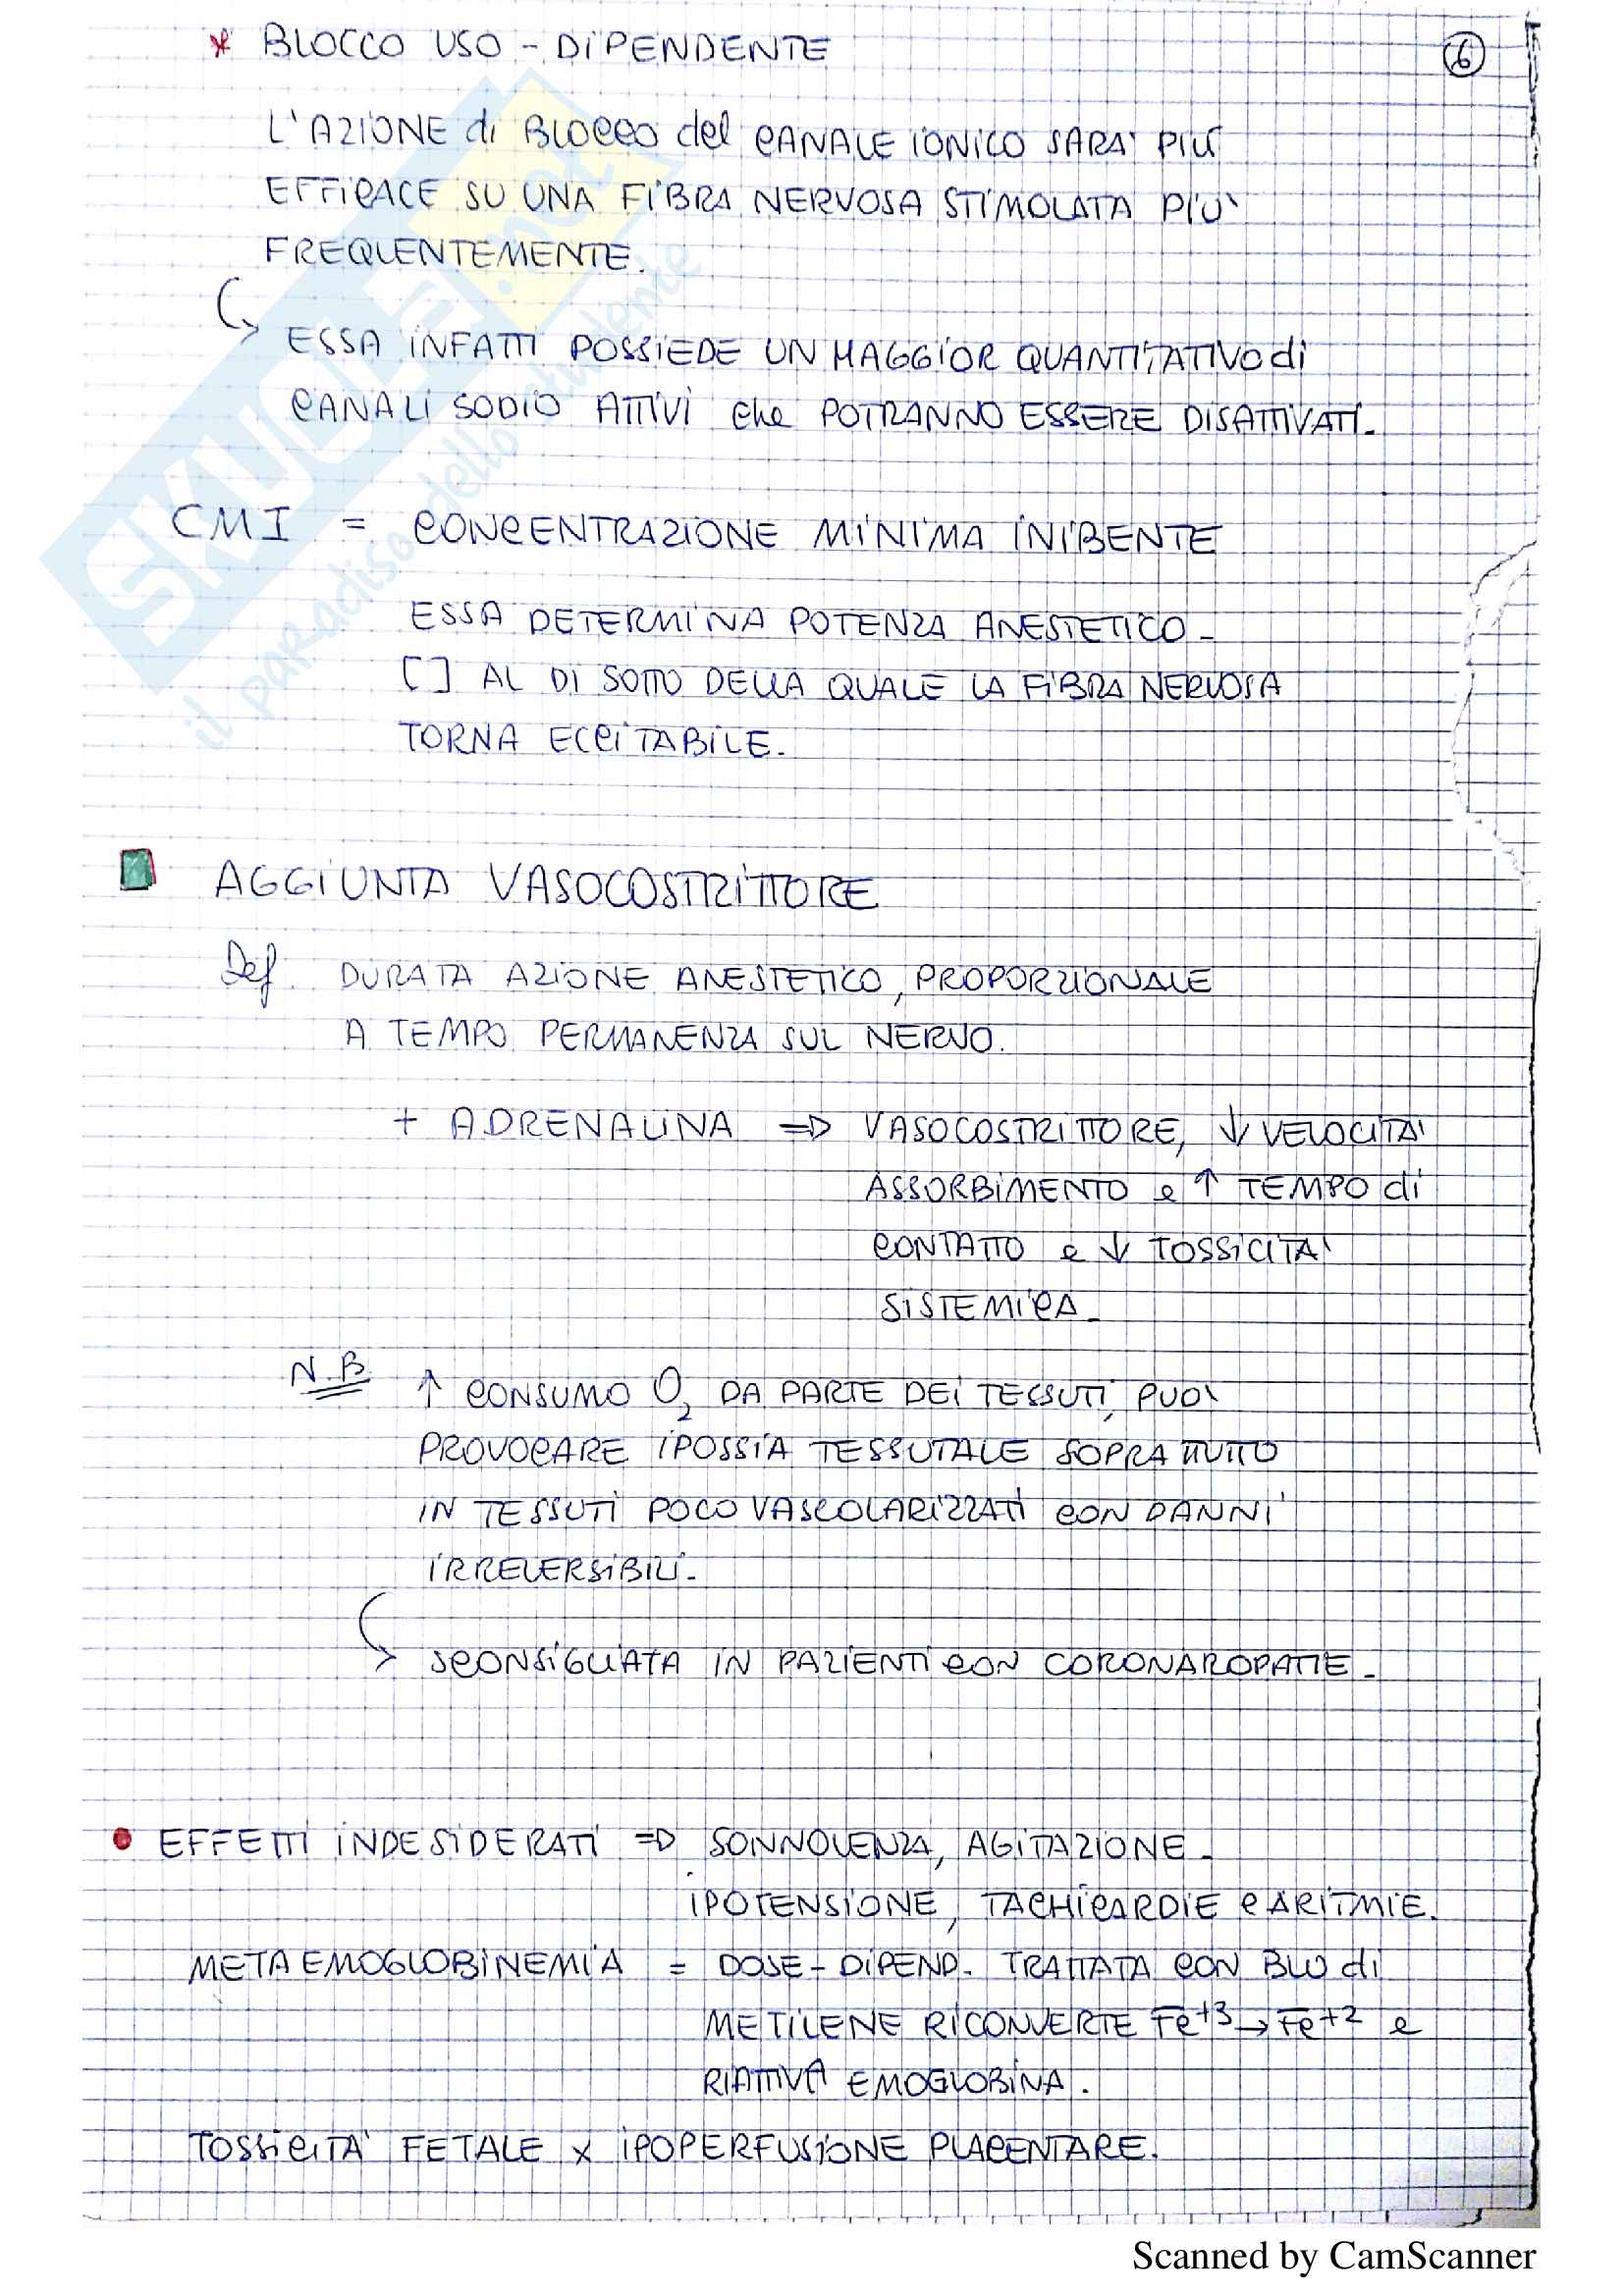 * BLOCCO USO - DIPENDENTE
6
L'AZIONE di BLOCCO del CANALE IONICO SARA' PIU'
EFFICACE SU UNA FIBRA NERVOSA STIMOLATA PIU'
FREQUENTEMENTE.
ESSA INFATTI POSSIEDE UN MAGGIOR QUANTITATIVO di
CANALI SODIO ATTIVI che POTRANNO ESSERE DISATTIVATI.
CMI = CONCENTRAZIONE MINIMA INIBENTE
ESSA DETERMINA POTENZA ANESTETICO -
[ ] AL DI SOTTO DELLA QUALE LA FIBRA NERVOSA
TORNA ECCITABILE.
AGGIUNTA VASOCOSTRITTORE
Def. DURATA AZIONE ANESTETICO, PROPORZIONALE
A TEMPO PERMANENZA SUL NERVO.
+ ADRENALINA => VASOCOSTRITTORE, ↓ VELOCITA'
ASSORBIMENTO e ↑ TEMPO di
CONTATTO e ↓ TOSSICITA'
SISTEMICA -
N.B ↑ CONSUMO O₂ DA PARTE DEI TESSUTI, PUO'
PROVOCARE IPOSSIA TESSUTALE SOPRATTUTTO
IN TESSUTI POCO VASCOLARIZZATI CON DANNI
IRREVERSIBILI -
SCONSIGLIATA IN PAZIENTI CON CORONAROPATIE -
• EFFETTI INDESIDERATI => SONNOLENZA, AGITAZIONE -
IPOTENSIONE, TACHICARDIE e ARITMIE.
METAEMOGLOBINEMIA = DOSE - DIPEND. TRATTATA CON BLU di
METILENE RICONVERTE Fe⁺³ → Fe⁺² e
RIATTIVA EMOGLOBINA.
TOSSICITA' FETALE x IPOPERFUSIONE PLACENTARE.
SKUOLA.net
il paradiso dello studente
Scanned by CamScanner